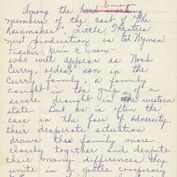 Among the hard strong
members of the cast of "The
Rainmaker", Little Theatre's
next production is Ed Wyman
Fischer,
who will appear as Noah
Curry, eldest son in the
Curry family, a family
caught in the grip of a
severe drought in the western
state. But as is often the
case in the face of adversity
their desperate situation
draws this family more
closely together and despite
their many differences they
unite in a gentle conspiracy